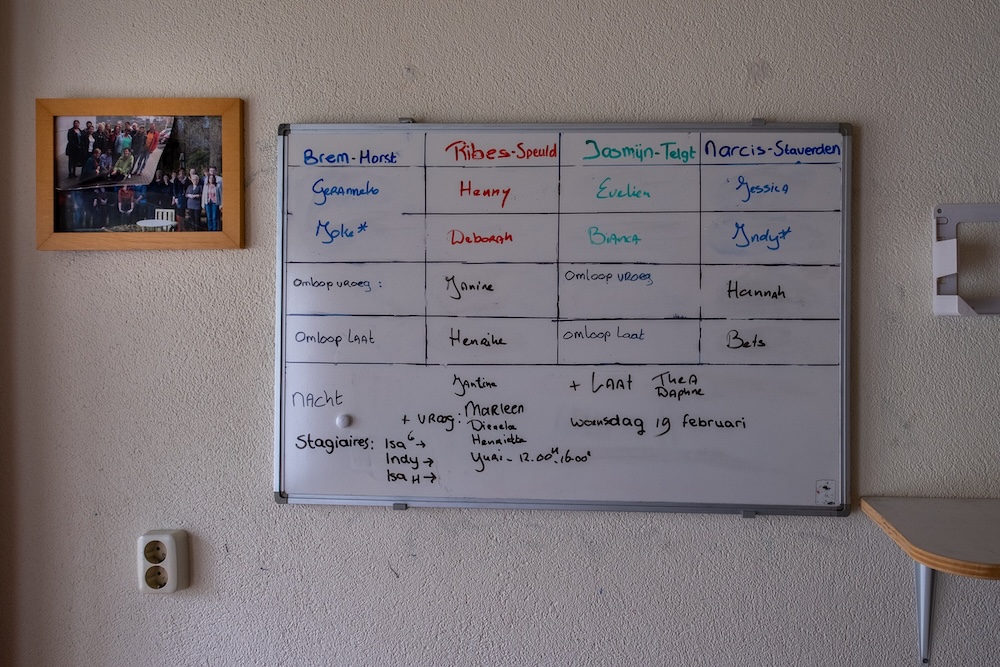 Brem-Horst Ribes-Speuld Jasmijn-Telgt Narcis-Staverden
Geranneke Henny Evelien Jessica
Joke* Deborah Bianca Indy*
Omloop vroeg: Janine Omloop vroeg Hannah
Omloop laat Henrike Omloop laat Bets
Nacht Jantine + Laat Thea
Daphne
+ vroeg: Marleen woensdag 19 februari
Dieneke
Stagiaires: Isa G → Henriette
Indy → Yuri - 12.00u-16.00u
Isa H →